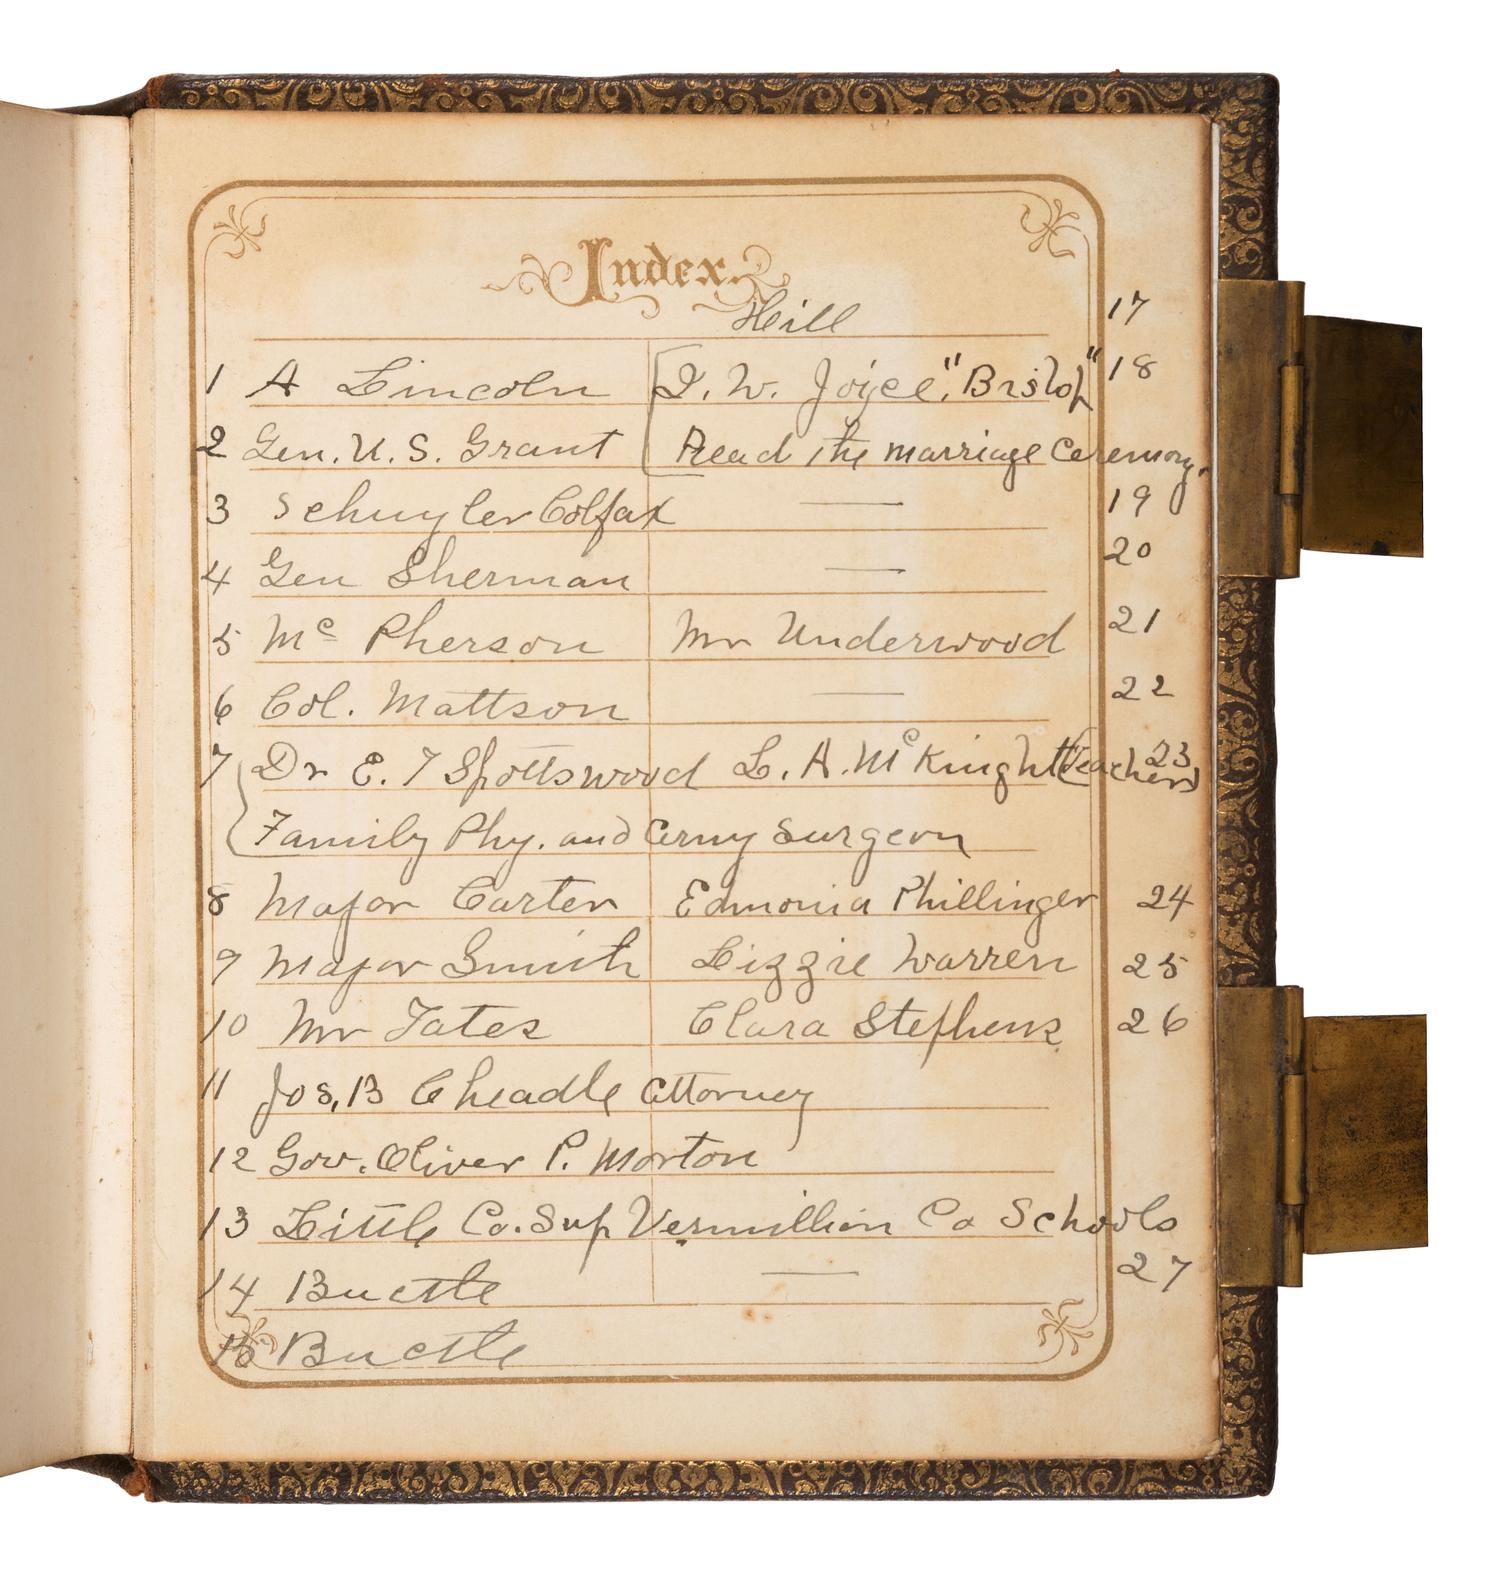 Index.
Hill 17
1 A Lincoln I. W. Joyce, "Bishop" 18
2 Gen. U. S. Grant Read the marriage ceremony.
3 Schuyler Colfax — 19
4 Gen Sherman — 20
5 Mc Pherson Mr Underwood 21
6 Col. Mattson — 22
7 Dr E. T Spottswood L. A. McKnight (Teacher) 23
Family Phy. and Army Surgeon
8 Major Carter Edmonia Phillinger 24
9 Major Smith Lizzie Warren 25
10 Mr Yates Clara Stephens 26
11 Jos, B Cheadle Attorney
12 Gov. Oliver P. Morton
13 Little Co. Sup Vermillion Co Schools
14 Buctle — 27
Buctle